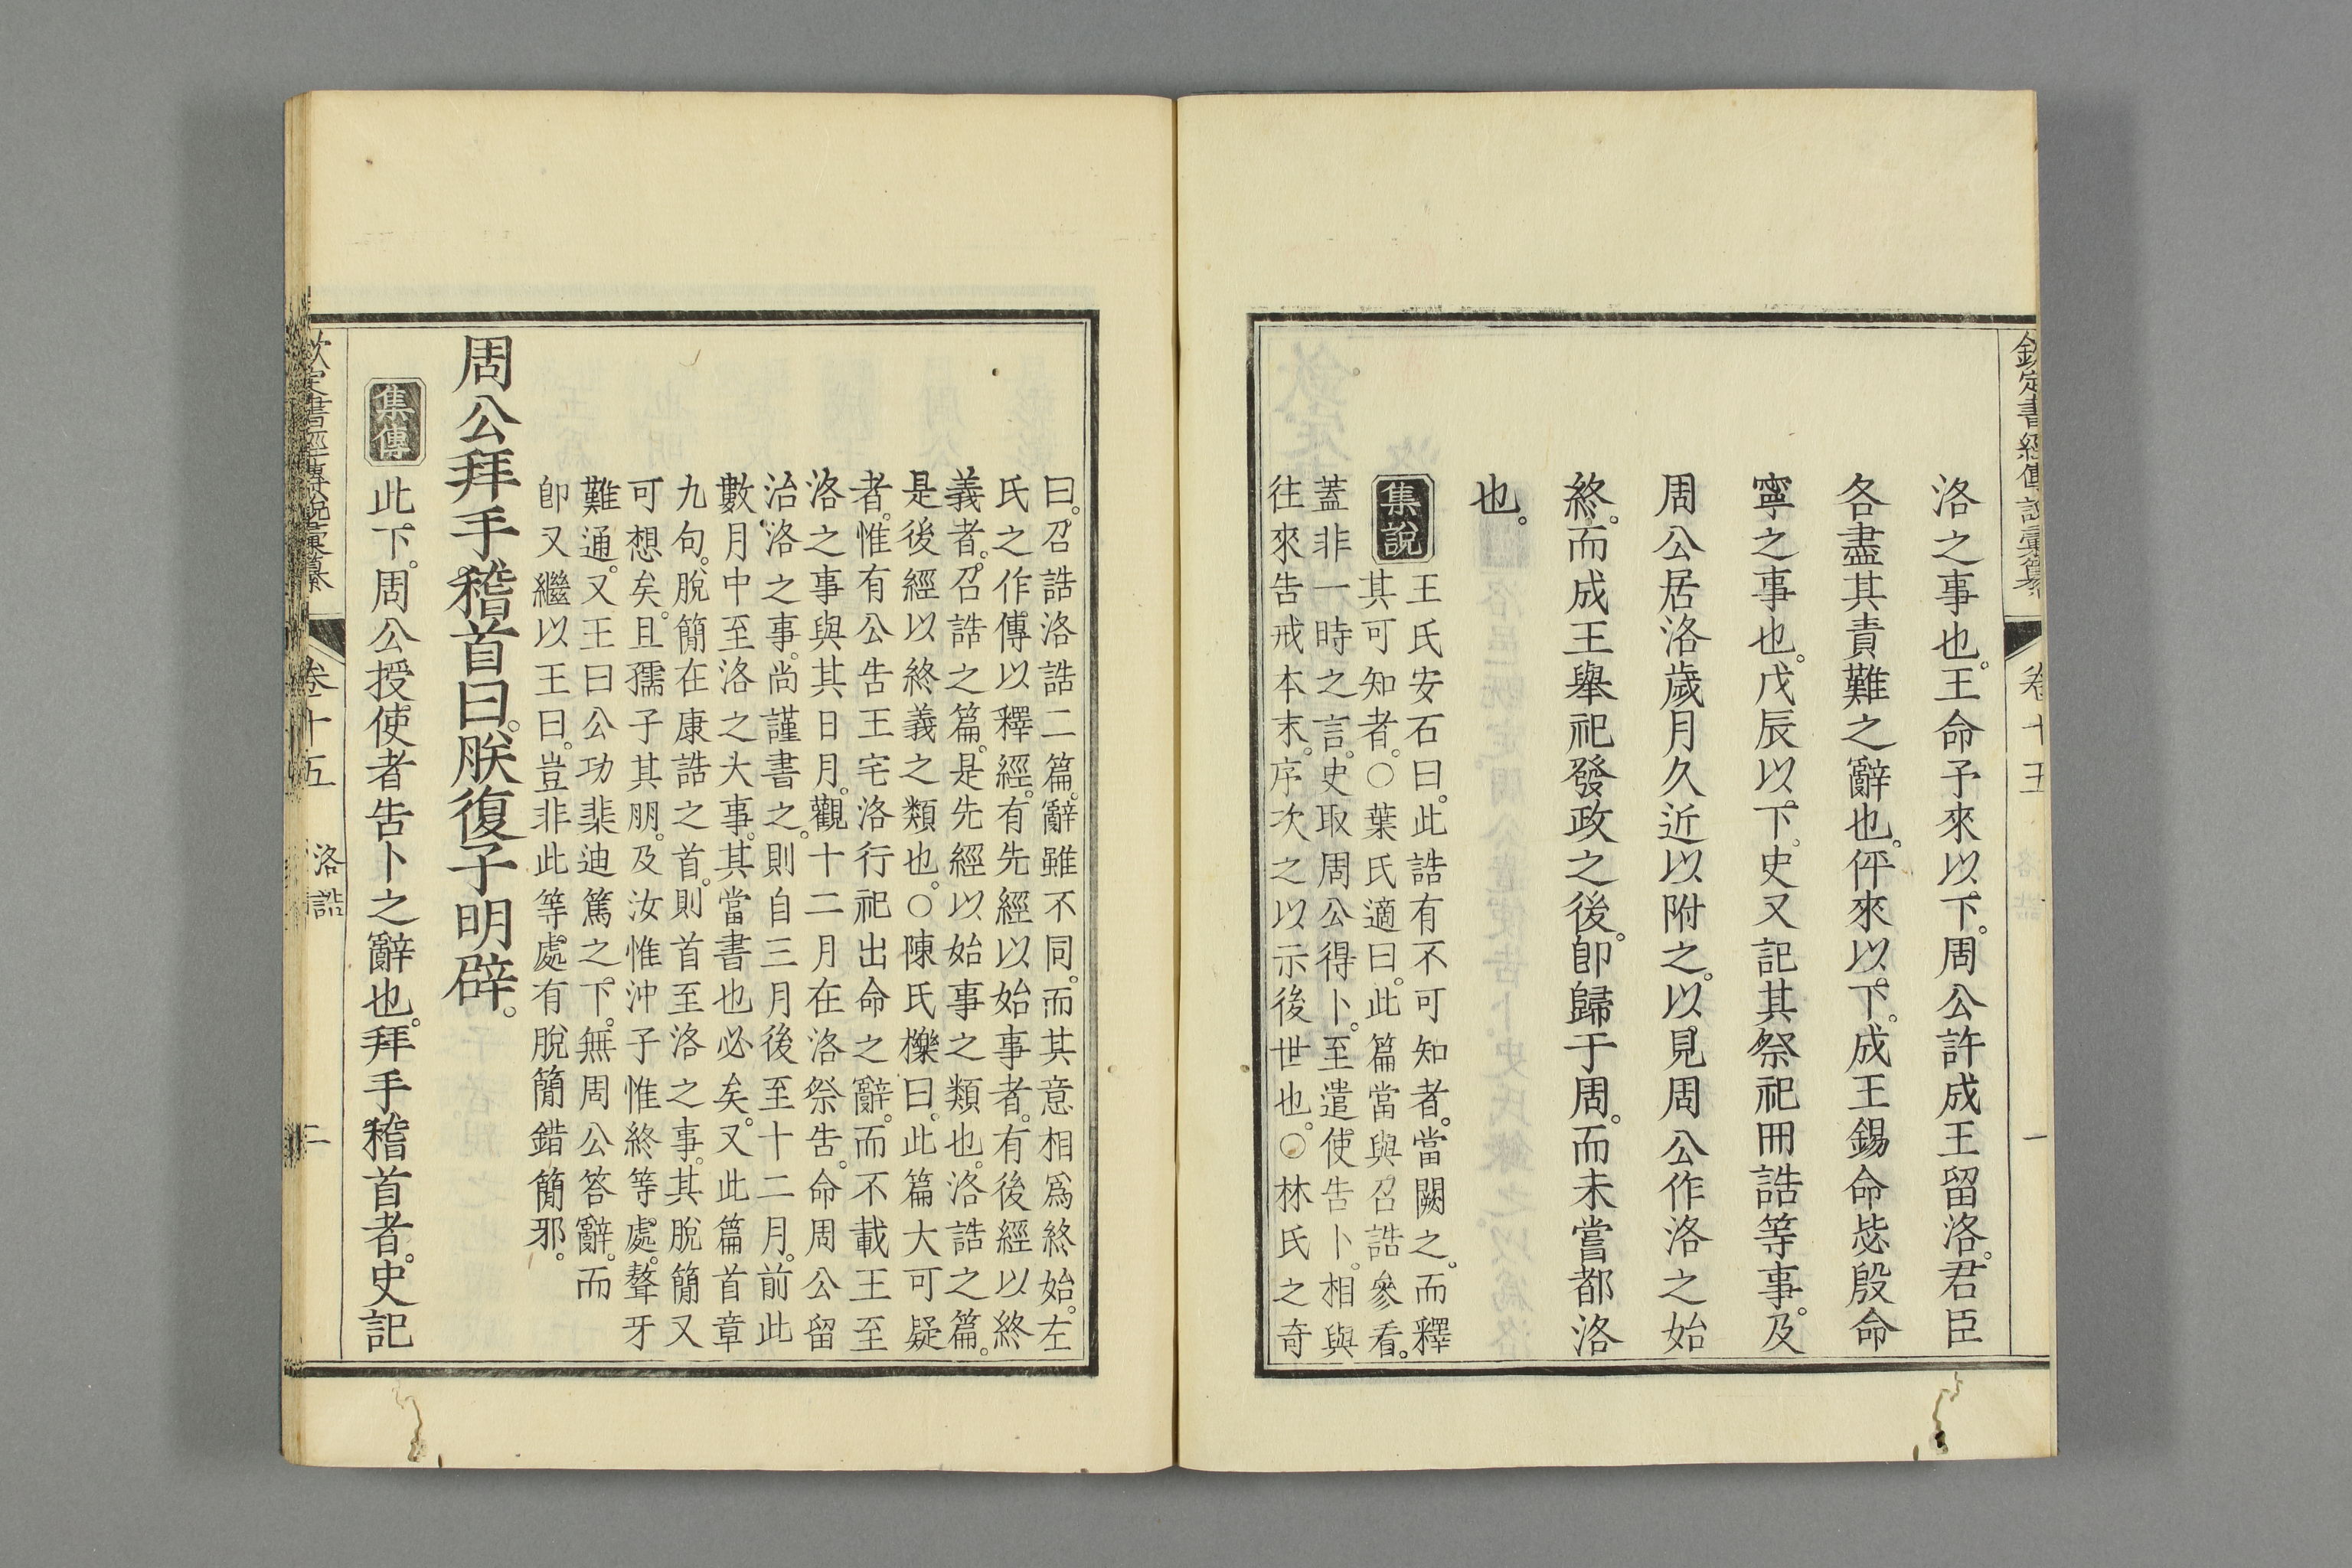 欽定書經傳說彙纂 卷十五 一
洛之事也。王命予來以下。周公許成王留洛。君臣
各盡其責難之辭也。伻來以下。成王錫命毖殷命
寧之事也。戊辰以下。史又記其祭祀冊誥等事。及
周公居洛歲月久近以附之。以見周公作洛之始
終。而成王舉祀發政之後。卽歸于周。而未嘗都洛
也。
集說
王氏安石曰。此誥有不可知者。當闕之。而釋
其可知者。○葉氏適曰。此篇當與召誥參看。
蓋非一時之言。史取周公得卜。至遣使告卜。相與
往來告戒本末。序次之以示後世也。○林氏之奇
曰。召誥洛誥二篇。辭雖不同。而其意相爲終始。左
氏之作傳以釋經。有先經以始事者。有後經以終
義者。召誥之篇。是先經以始事之類也。洛誥之篇。
是後經以終義之類也。○陳氏櫟曰。此篇大可疑
者。惟有公告王宅洛行祀出命之辭。而不載王至
洛之事與其日月。觀十二月在洛祭告。命周公留
治洛之事。尚謹書之。則自三月後至十二月。前此
數月中至洛之大事。其當書也必矣。又此篇首章
九句。脫簡在康誥之首。則首至洛之事。其脫簡又
可想矣。且孺子其朋。及汝惟沖子惟終等處。聱牙
難通。又王曰公功棐迪篤之下。無周公答辭。而
卽又繼以王曰。豈非此等處有脫簡錯簡邪。
周公拜手稽首曰。朕復子明辟。
集傳
此下。周公授使者告卜之辭也。拜手稽首者。史記
欽定書經傳說彙纂 卷十五 洛誥 二